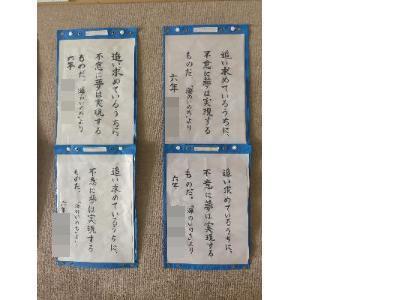 追い求めているうちに、
不意に夢は実現する
ものだ。 海のいのちより
六年
追い求めているうちに、
不意に夢は実現する
ものだ。 海のいのちより
六年
追い求めているうちに、
不意に夢は実現する
ものだ。 海のいのちより
六年
追い求めているうちに、
不意に夢は実現する
ものだ。 海のいのちより
六年